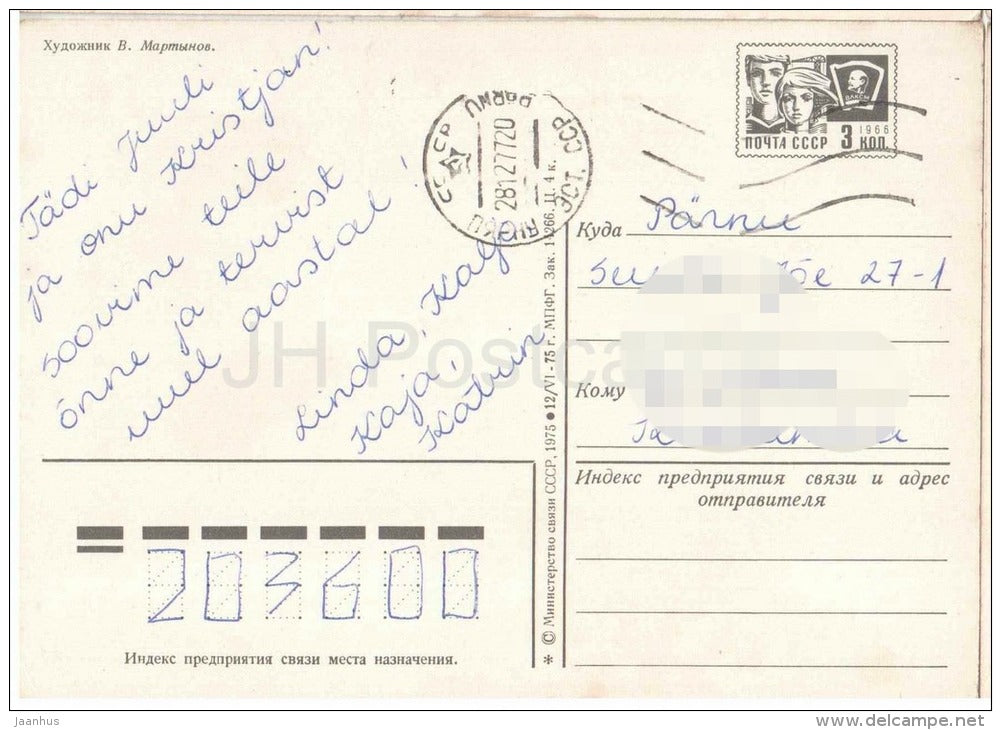 Художник В. Мартынов.
Tädi Juuli
ja onu Kristjan!
soovime teile
õnne ja tervist
uuel aastal!
Linda, Kalju
Kaja,
Katrin
ПОЧТА СССР 3 КОП.
1966
ВЛКСМ
СССР PARNU
281277 20
ЭСТ. ССР
Куда Pärnu
27-1
Кому
Индекс предприятия связи и адрес
отправителя
203600
Индекс предприятия связи места назначения.
* © Министерство связи СССР, 1975 ● 12/VI-75 г. МПФГ. Зак. Ц. 4 к.
JH Postca
jaanhus
www.delcampe.net